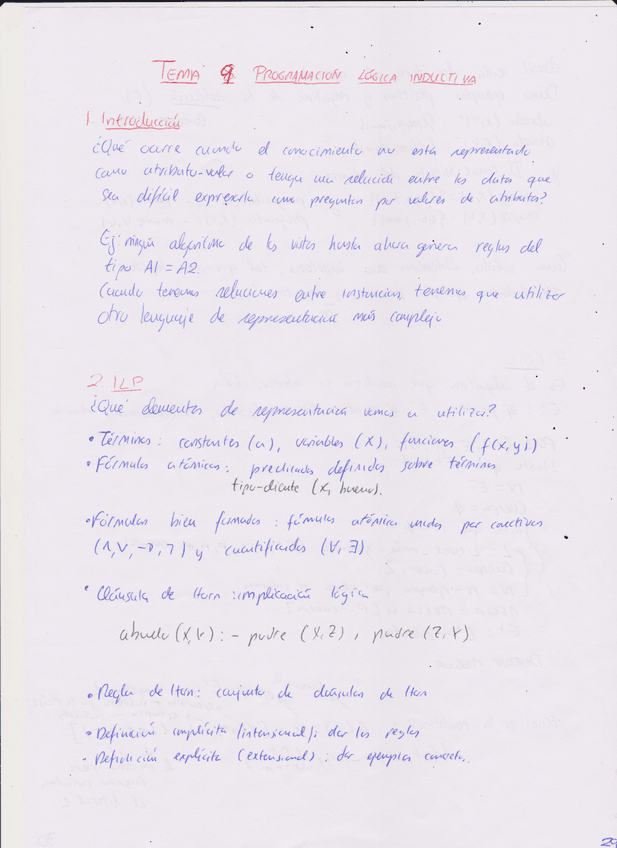 TEMA 9 PROGRAMACIÓN LÓGICA INDUCTIVA
1. Introducción
¿Qué ocurre cuando el conocimiento no está representado
como atributo-valor o tenga una relación entre los datos que
sea difícil expresarla como preguntas por valores de atributos?
Ej: ningún algoritmo de los vistos hasta ahora genera reglas del
tipo A1 = A2.
Cuando tenemos relaciones entre instancias, tenemos que utilizar
otro lenguaje de representación más complejo
2. ILP
¿Qué elementos de representación vamos a utilizar?
• Términos: constantes (a), variables (X), funciones (f(x,y))
• Fórmulas atómicas: predicados definidos sobre términos
tipo-cliente (x, bueno).
• Fórmulas bien formadas: fórmulas atómicas unidas por conectivas
(∧, ∨, →, ¬) y cuantificadores (∀, ∃)
• Cláusula de Horn: implicación lógica
abuelo (X,Y) :- padre (X,Z), padre (Z,Y)
• Regla de Horn: conjunto de cláusulas de Horn
• Definición implícita (intensional): dar las reglas
- Definición explícita (extensional): dar ejemplos concretos.
29